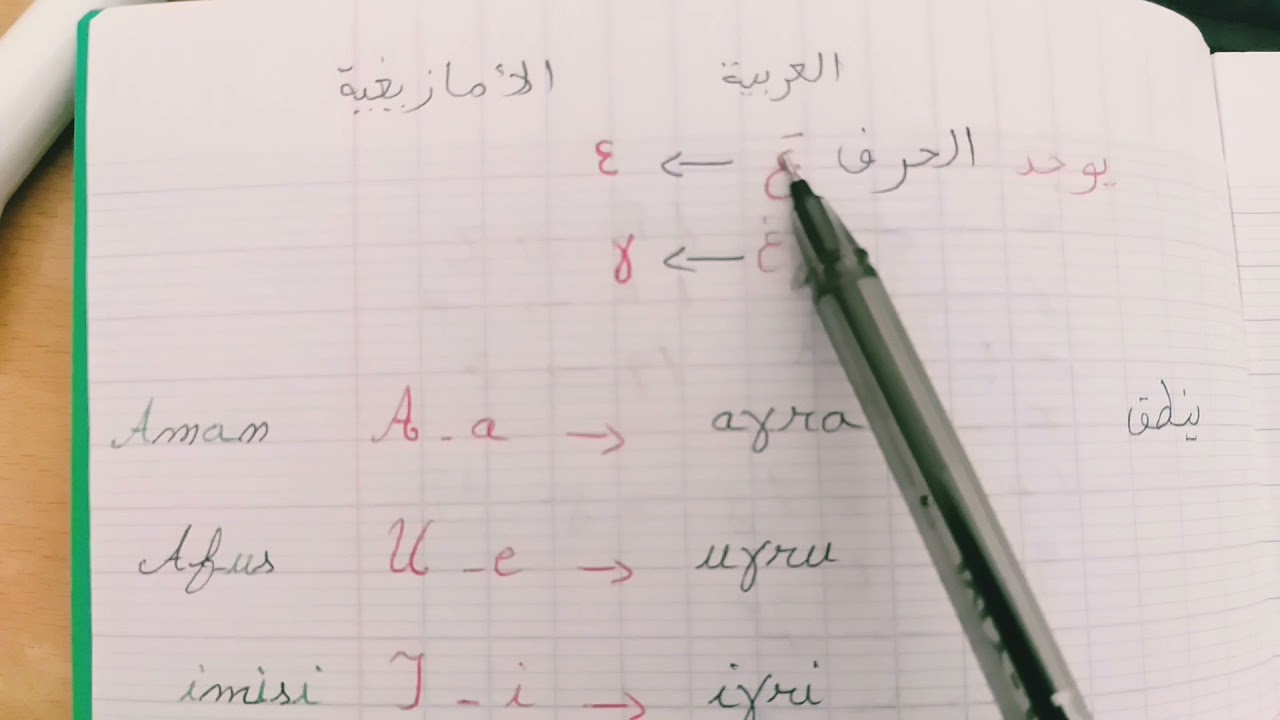 العربية الأمازيغية
يوحد الحرف ع ← ع
غ ← ɣ
Aman A - a → aɣra ينطق
Afus U - e → uɣru
imisi I - i → iɣri